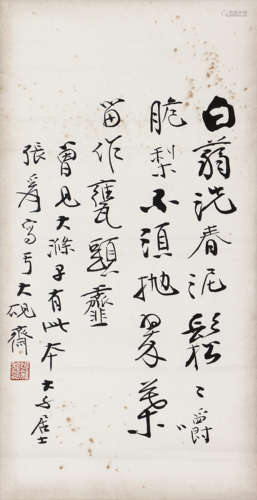 白蒻洗春泥鬆〻爵
脆梨不須拋翠葉
留作甕頭虀
曾見大滌子有此本 大千居士
張爰寫于大硯齋